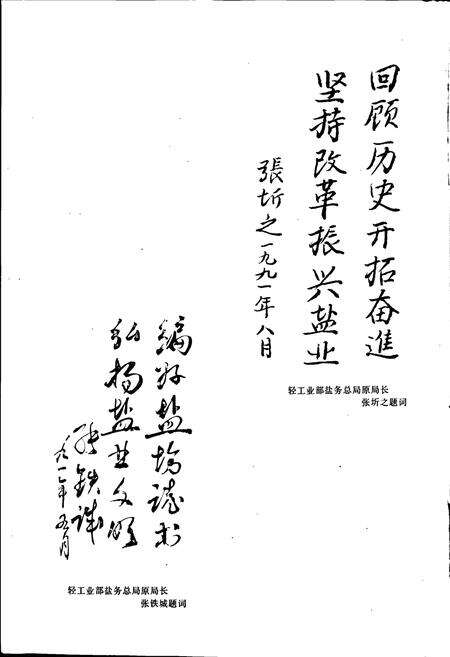 回顾历史开拓奋進
坚持改革振兴盐业
張圻之一九九一年八月
轻工业部盐务总局原局长
张圻之题词
編好盐場誌书
弘杨盐业文明
张铁城
一九九一年五月
轻工业部盐务总局原局长
张铁城题词